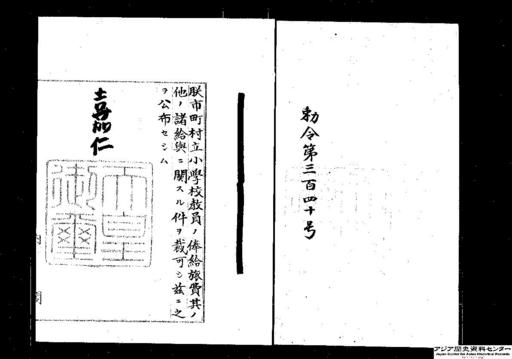 勅令第三百四十号
朕市町村立小學校教員ノ俸給旅費其ノ
他ノ諸給與ニ關スル件ヲ裁可シ玆ニ之
ヲ公布セシム
嘉仁
天皇
御璽
内
閣
アジア歴史資料センター
Japan Center for Asian Historical Records